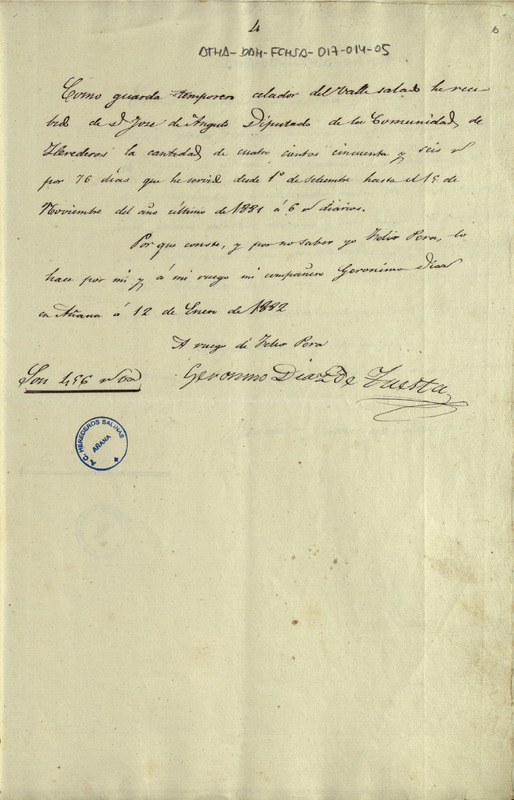 4
6
ATHA-DAH-FCHSA-017-014-05
Como guarda temporero celador del Valle salado he reci
bido de Dn Jose de Angulo Diputado de la Comunidad de
Herederos la cantidad de cuatro cientos cincuenta y seis rs
por 76 dias que he servido desde 1º de Setiembre hasta el 15 de
Noviembre del año último de 1881 á 6 rs diarios.
Por que conste, y por no saber yo Felix Pera, lo
hace por mi y á mi ruego mi compañero Geronimo Diaz
en Añana á 12 de Enero de 1882
A ruego de Felix Pera
Son 456 rs
Geronimo Diaz de Tuesta
A.C. HEREDEROS SALINAS
AÑANA